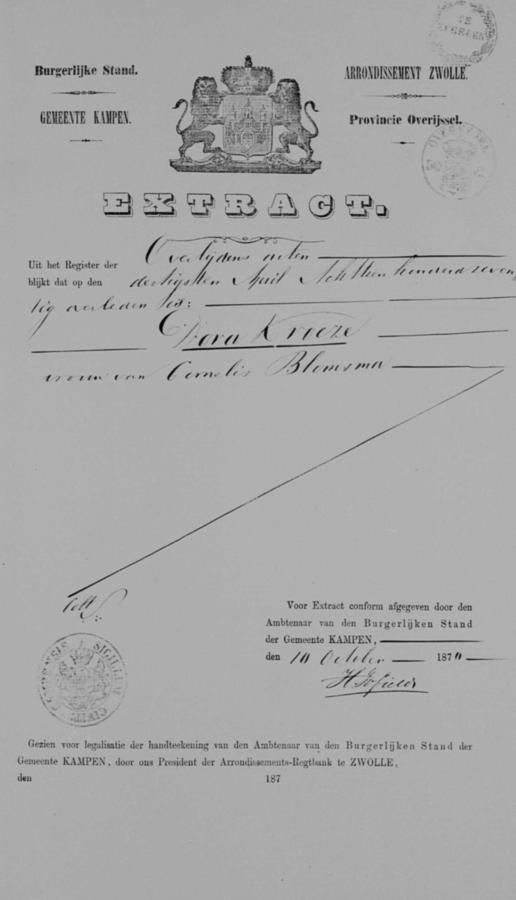 Burgerlijke Stand.
GEMEENTE KAMPEN.
ARRONDISSEMENT ZWOLLE.
Provincie Overijssel.
EXTRACT.
Uit het Register der Overlijdens acten
blijkt dat op den dertigsten April Achttien honderd seven
tig overleden is:
Dora Kroeze
vrouw van Cornelis Blomsma
Voor Extract conform afgegeven door den
Ambtenaar van den Burgerlijken Stand
der Gemeente KAMPEN,
den 10 October 1870
SIGILLUM
Gezien voor legalisatie der handteekening van den Ambtenaar van den Burgerlijken Stand der
Gemeente KAMPEN, door ons President der Arrondissements-Regtbank te ZWOLLE,
den 187